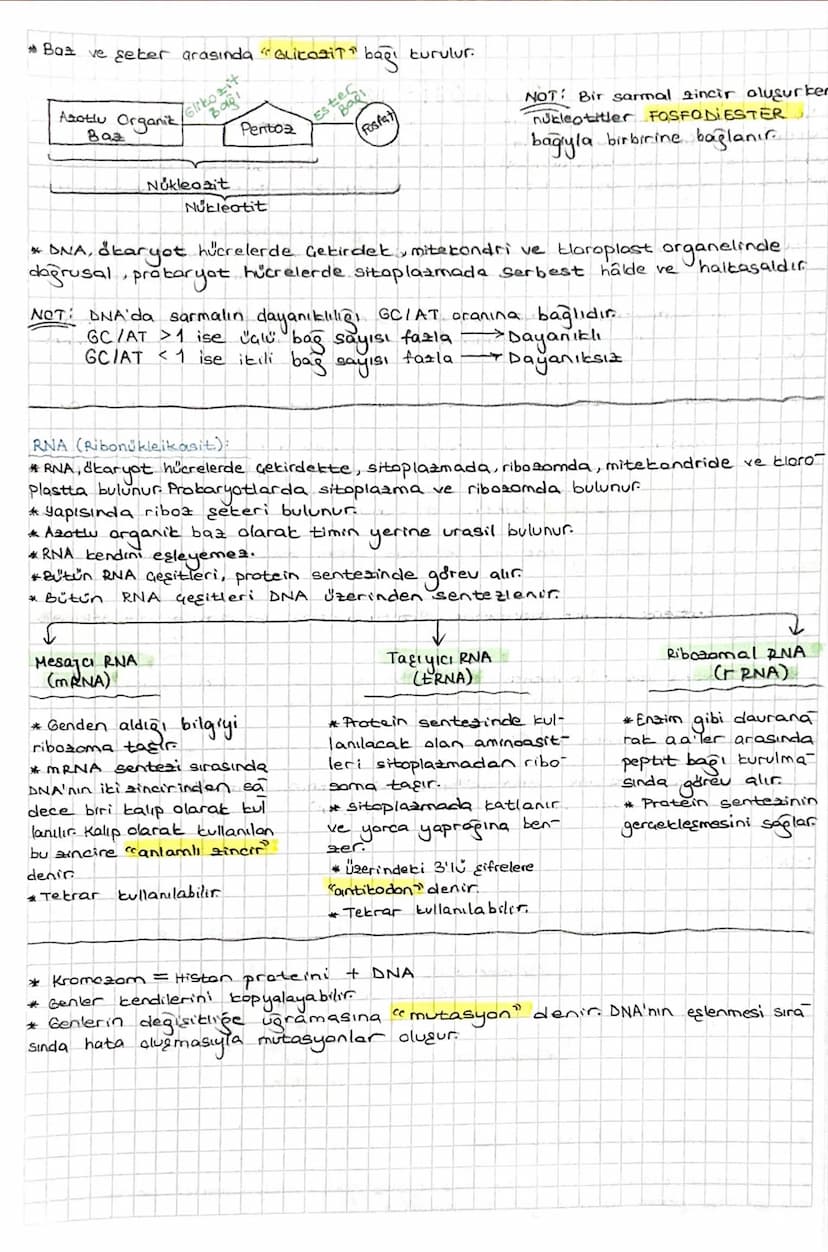 * Baz ve şeker arasında "GLİKOZİT" bağı kurulur.
Glikozit Bağı
Ester Bağı
Azotlu Organik Baz
Pentoz
Fosfat
Nükleozit
Nükleotit
NOT: Bir sarmal zincir oluşurken
nükleotitler FOSFODİESTER
bağıyla birbirine bağlanır.
* DNA, ökaryot hücrelerde çekirdek, mitekondri ve kloroplast organelinde
doğrusal, prokaryot hücrelerde sitoplazmada serbest hâlde ve halkasaldır.
NOT: DNA'da sarmalın dayanıklılığı GC/AT oranına bağlıdır.
GC/AT > 1 ise üçlü bağ sayısı fazla → Dayanıklı
GC/AT < 1 ise ikili bağ sayısı fazla → Dayanıksız
RNA (Ribonükleikasit):
* RNA, ökaryot hücrelerde çekirdekte, sitoplazmada, ribozomda, mitekondride ve kloro-
plastta bulunur. Prokaryotlarda sitoplazma ve ribozomda bulunur.
* Yapısında riboz şekeri bulunur.
* Azotlu organik baz olarak timin yerine urasil bulunur.
* RNA kendini eşleyemez.
* Bütün RNA çeşitleri, protein sentezinde görev alır.
* Bütün RNA çeşitleri DNA üzerinden sentezlenir.
Mesajcı RNA
(mRNA)
* Genden aldığı bilgiyi
ribozoma taşır.
* mRNA sentezi sırasında
DNA'nın iki zincirinden sa-
dece biri kalıp olarak kul
lanılır. Kalıp olarak kullanılan
bu zincire "anlamlı zincir"
denir.
* Tekrar kullanılabilir.
Taşıyıcı RNA
(tRNA)
* Protein sentezinde kul-
lanılacak olan aminoasit-
leri sitoplazmadan ribo-
zoma taşır.
* Sitoplazmada katlanır
ve yonca yaprağına ben-
zer.
* Üzerindeki 3'lü şifrelere
"antikodon" denir.
* Tekrar kullanılabilir.
Ribozomal RNA
(rRNA)
* Enzim gibi davrana-
rak aa'ler arasında
peptit bağı kurulma-
sında görev alır.
* Protein sentezinin
gerçekleşmesini sağlar.
* Kromozom = Histon proteini + DNA
* Genler kendilerini kopyalayabilir.
* Genlerin değişikliğe uğramasına "mutasyon" denir. DNA'nın eşlenmesi sıra-
sında hata oluşmasıyla mutasyonlar oluşur.